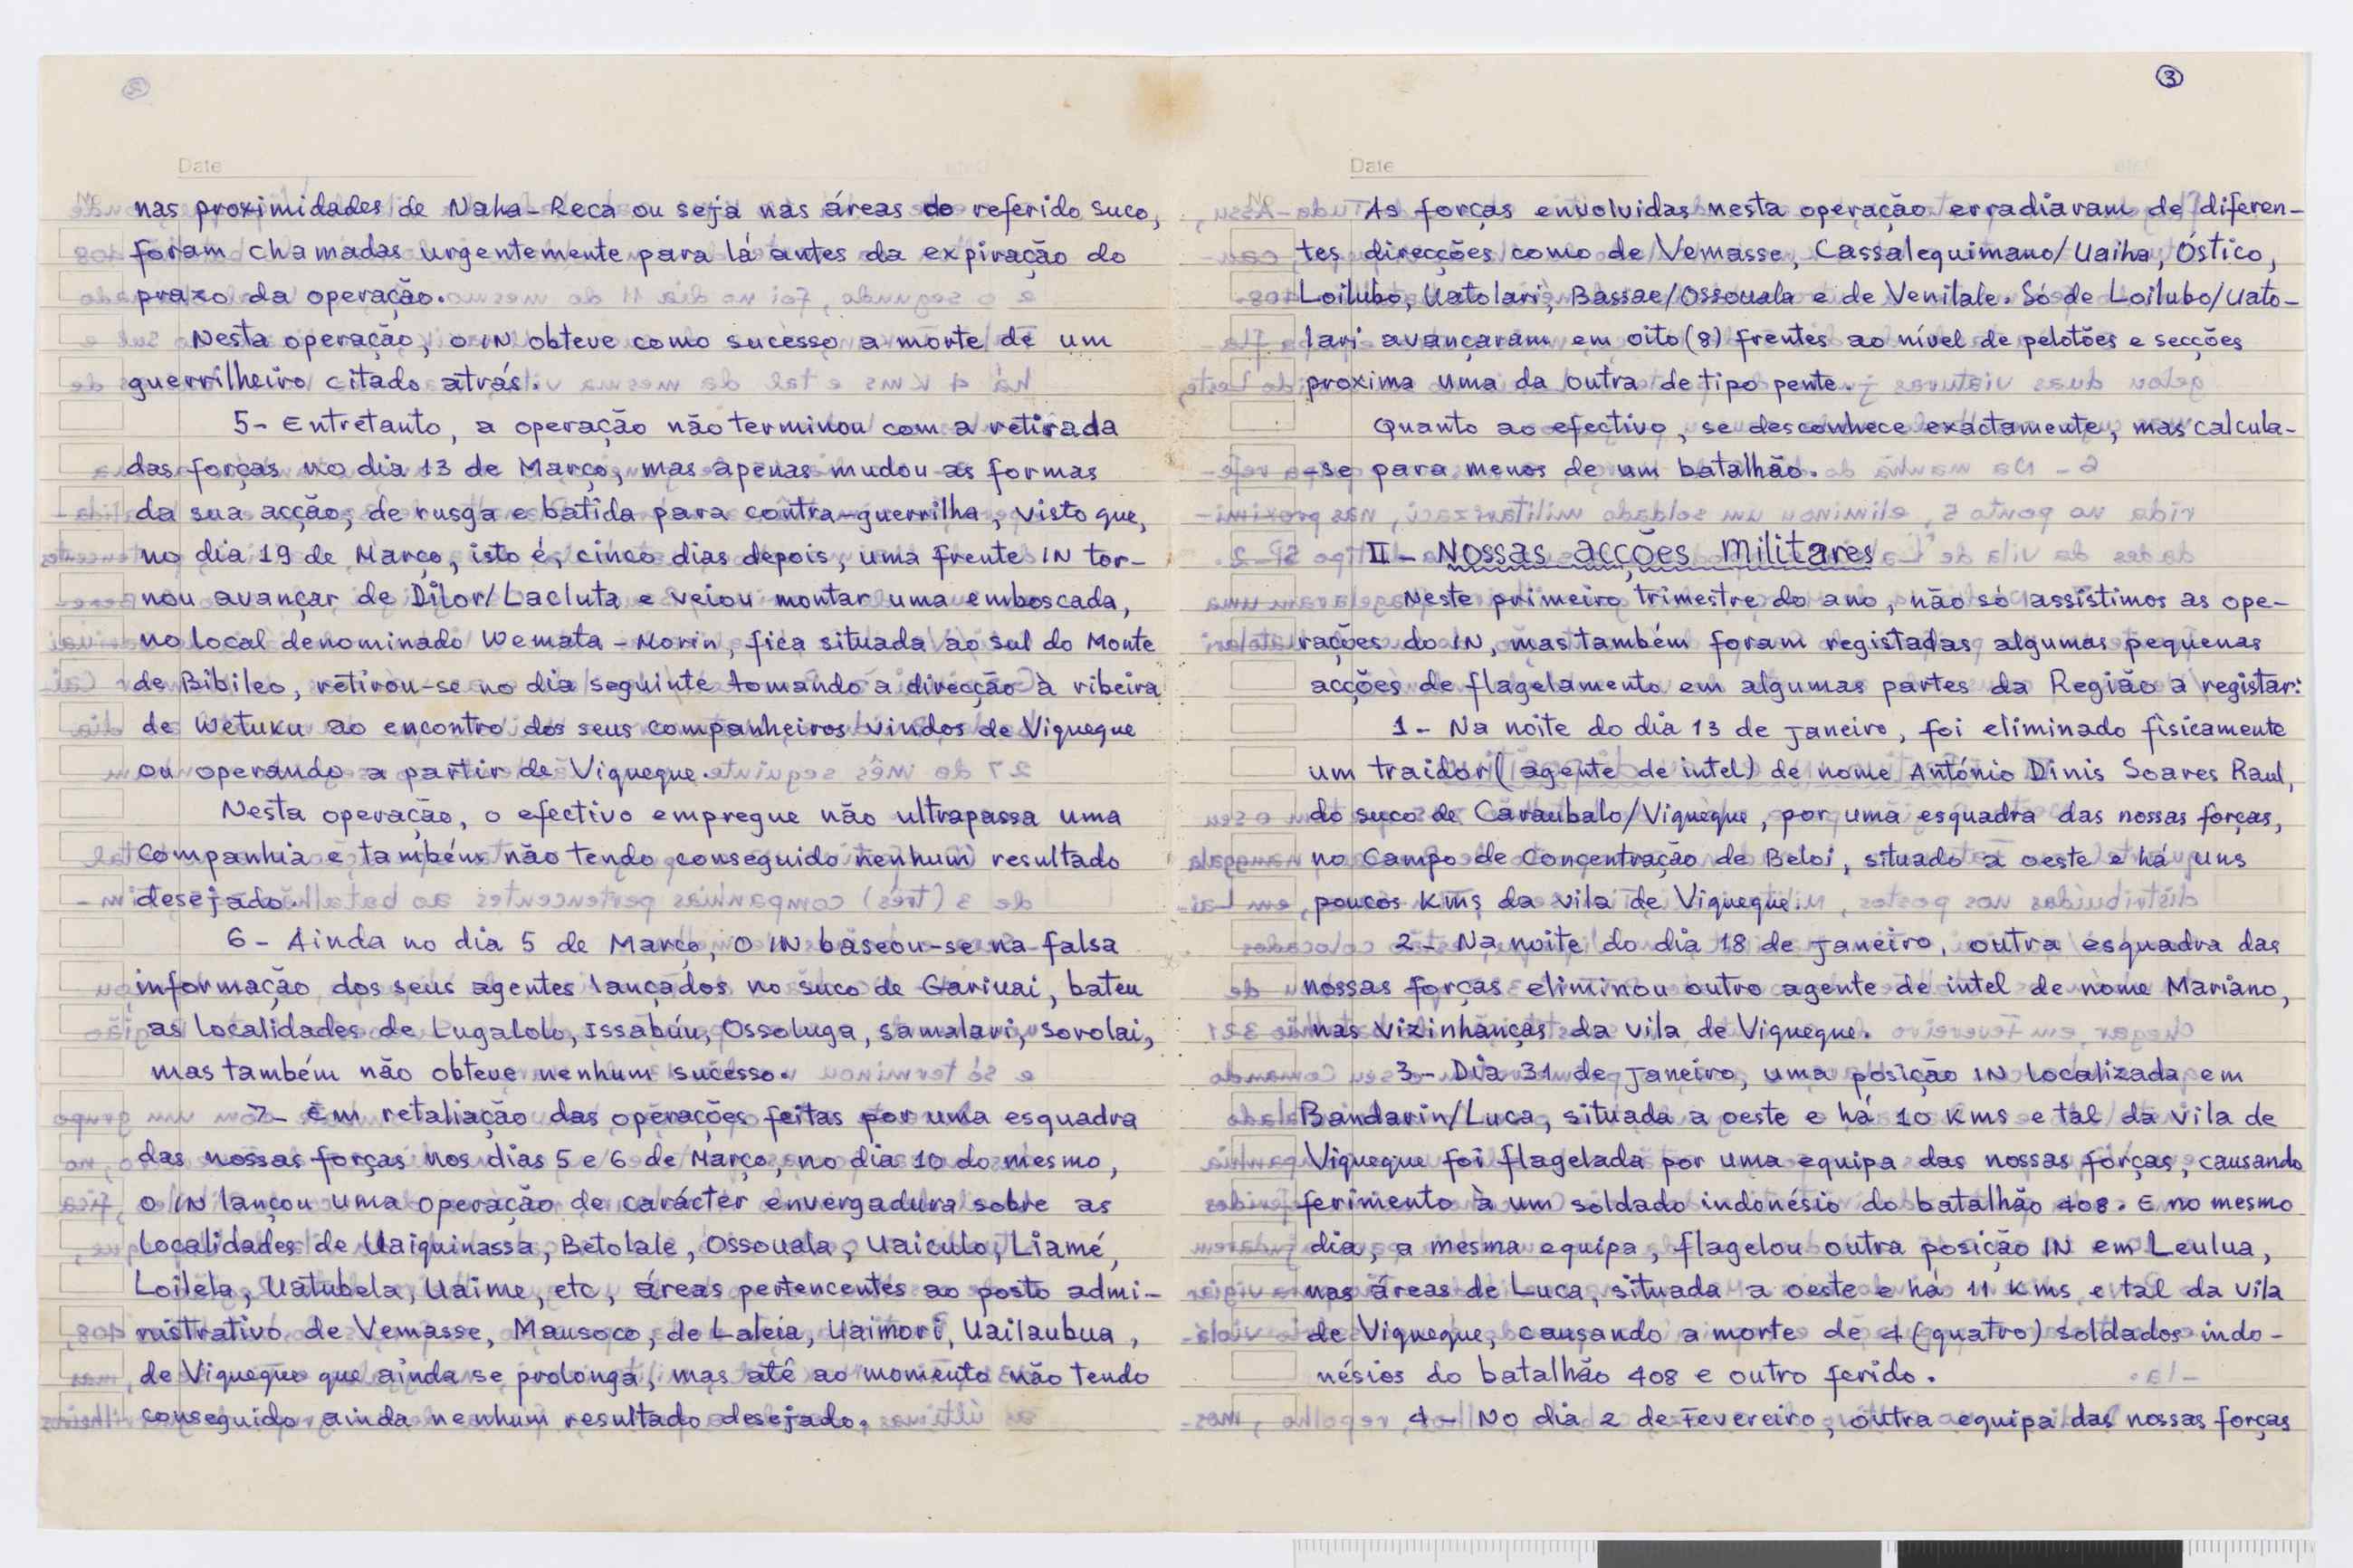 Date
nas proximidades de Naha-Reca ou seja nas áreas do referido suco,
foram chamadas urgentemente para lá antes da expiração do
prazo da operação.
Nesta operação, o IN obteve como sucesso a morte de um
guerrilheiro citado atrás.
5- Entretanto, a operação não terminou com a retirada
das forças no dia 13 de Março, mas apenas mudou as formas
da sua acção, de rusga e batida para contra-guerrilha, visto que,
no dia 19 de Março, isto é, cinco dias depois, uma frente IN tor-
nou avançar de Dilor/Lacluta e veiou montar uma emboscada,
no local denominado Wemata-Morin, fica situada ao sul do Monte
de Bibileo, retirou-se no dia seguinte tomando a direcção à ribeira
de Wetuku ao encontro dos seus companheiros vindos de Viqueque
ou operando a partir de Viqueque.
Nesta operação, o efectivo empregue não ultrapassa uma
companhia e também não tendo conseguido nenhum resultado
desejado.
6- Ainda no dia 5 de Março, o IN baseou-se na falsa
informação dos seus agentes lançados no suco de Gariuai, bateu
as localidades de Lugalolo, Issabúu, Ossoluga, samalari, sorolai,
mas também não obteve nenhum sucesso.
7- Em retaliação das operações feitas por uma esquadra
das nossas forças nos dias 5 e 6 de Março, no dia 10 do mesmo,
o IN lançou uma operação de carácter envergadura sobre as
localidades de Uaiquinassa, Betolale, Ossouala, Uaiculo, Liamé,
Loilela, Uatubela, Uaime, etc, áreas pertencentes ao posto admi-
nistrativo de Vemasse, Mausoco, de Laleia, Uaimori, Uailaubua,
de Viqueque que ainda se prolonga, mas até ao momento não tendo
conseguido ainda nenhum resultado desejado.
3
Date
As forças envolvidas nesta operação erradiaram de diferen-
tes direcções como de Vemasse, Cassalequimano/Uaiha, Óstico,
Loilubo, Uatolari, Bassae/Ossouala e de Venilale. Só de Loilubo/Uato-
lari avançaram em oito (8) frentes ao nível de pelotões e secções
proxima uma da outra de tipo pente.
Quanto ao efectivo, se desconhece exactamente, mas calcula-
-se para menos de um batalhão.
II - Nossas acções militares
Neste primeiro trimestre do ano, não só assistimos as ope-
rações do IN, mas também foram registadas algumas pequenas
acções de flagelamento em algumas partes da Região a registar:
1- Na noite do dia 13 de Janeiro, foi eliminado fisicamente
um traidor (agente de intel) de nome António Dinis Soares Raul,
do suco de Caraubalo/Viqueque, por uma esquadra das nossas forças,
no Campo de Concentração de Beloi, situado a oeste e há uns
poucos Kms da vila de Viqueque.
2- Na noite do dia 18 de Janeiro, outra esquadra das
nossas forças eliminou outro agente de intel de nome Mariano,
nas vizinhanças da vila de Viqueque.
3- Dia 31 de Janeiro, uma posição IN localizada em
Bandarin/Luca, situada a oeste e há 10 Kms e tal da vila de
Viqueque foi flagelada por uma equipa das nossas forças, causando
ferimento à um soldado indonésio do batalhão 408. E no mesmo
dia, a mesma equipa, flagelou outra posição IN em Leulua,
nas áreas de Luca, situada a oeste e há 11 Kms e tal da vila
de Viqueque, causando a morte de 4 (quatro) soldados indo-
nésios do batalhão 408 e outro ferido.
4- No dia 2 de Fevereiro, outra equipa das nossas forças